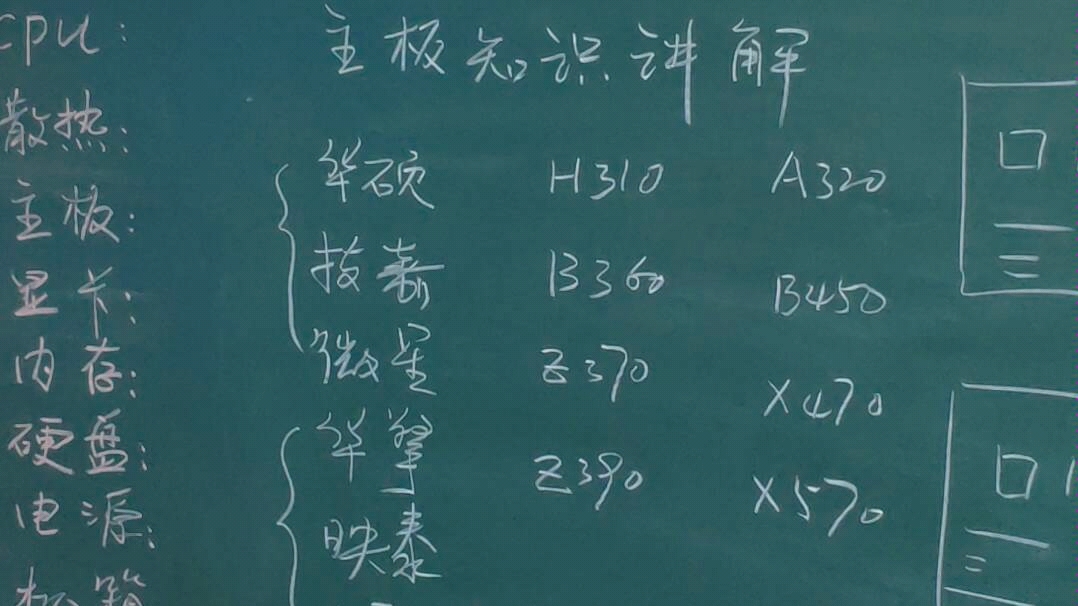 CPU:
散热:
主板:
显卡:
内存:
硬盘:
电源:
机箱
主板知识讲解
华硕 H310 A320
技嘉 B360 B450
微星 Z370 X470
华擎 Z390 X570
映泰